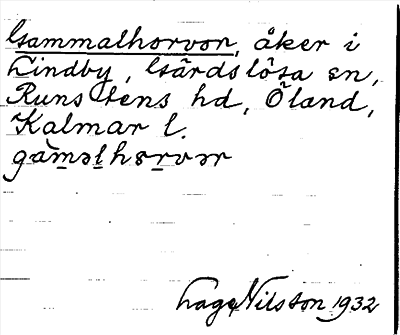 Gammalhorvor, åker i
Lindby, Gärdslösa sn,
Runstens hd, Öland,
Kalmar l.
gàməlhɵrvər
Hage Nilsson 1932